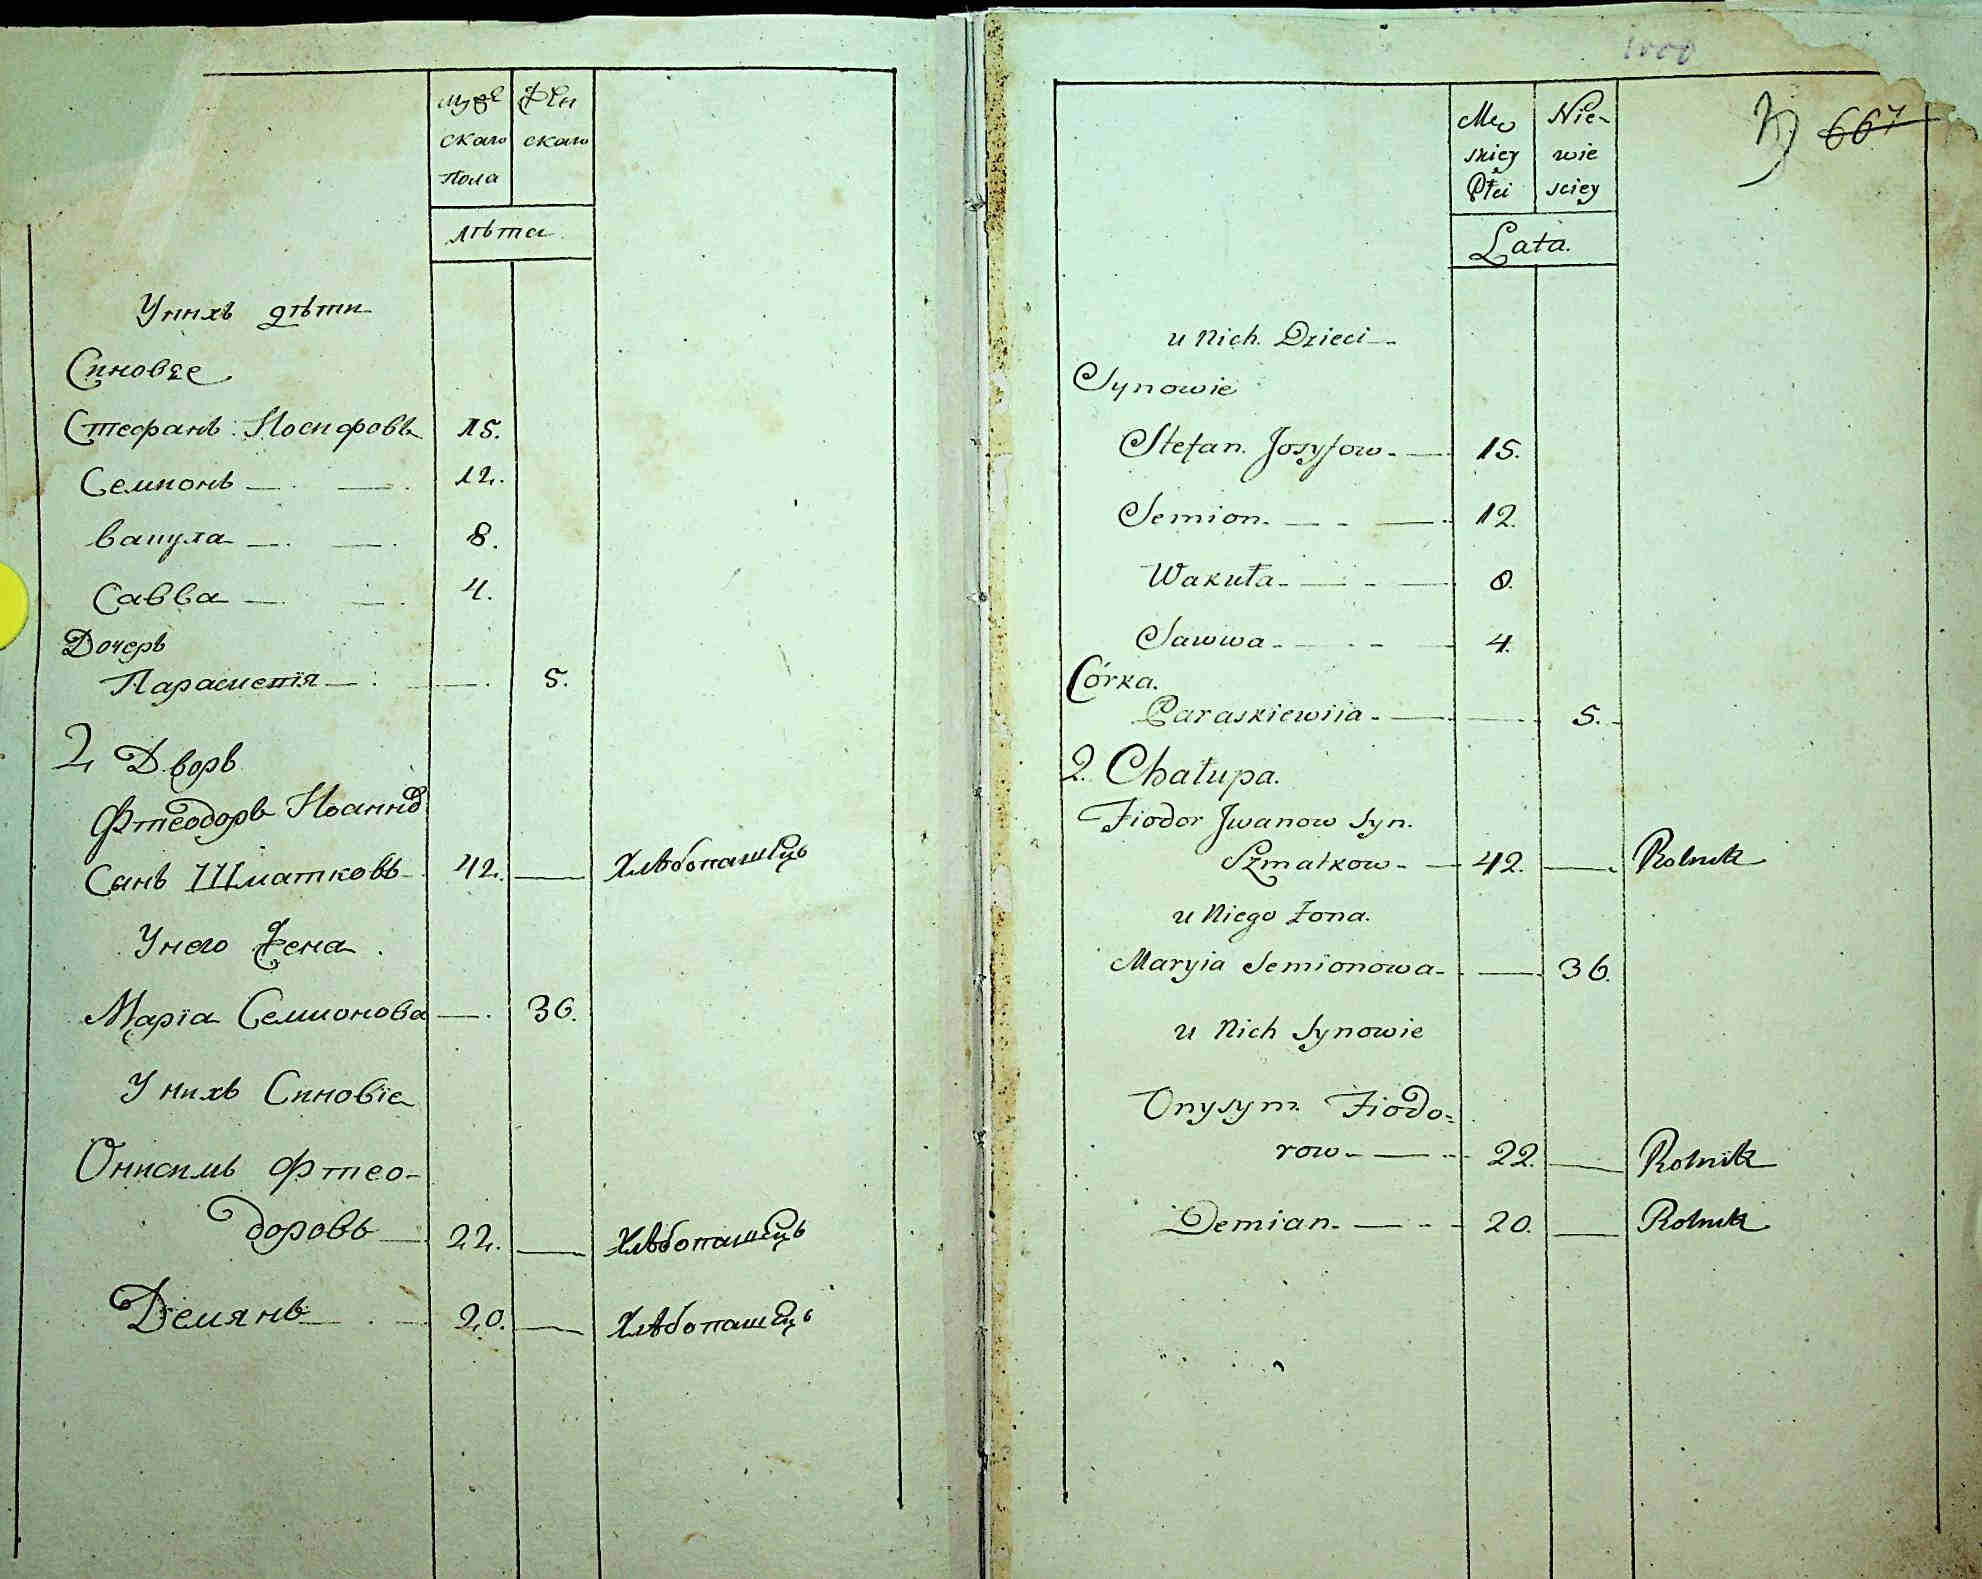 мужескаго пола
женскаго
лѣта
Унихъ дѣти
Синовее
Стефанъ Иосифовъ 15.
Семионъ 12.
вакула 8.
Савва 4.
Дочеръ
Параскевия 5.
2 Дворъ
Фтеодоръ Иоаннов
Санъ Шматковъ 42. Хлѣбопашецъ
Унего жена
Маріа Семионова 36.
У нихъ Синовіе
Онисимъ Фтео-
доровъ 22. Хлѣбопашецъ
Демянъ 20. Хлѣбопашецъ
667
Męskiey Płci
Nie-
wie
sciey
Lata.
u Nich Dzieci
Synowie
Stefan Josyfow 15.
Semion 12.
Wakuła 8.
Sawwa 4.
Córka.
Paraskiewiia 5.
2. Chałupa.
Fiodor Jwanow Syn.
Szmatkow 42. Rolnik
u Niego Żona.
Maryia Semionowa 36.
u Nich Synowie
Onysym Fiodo-
row 22. Rolnik
Demian 20. Rolnik